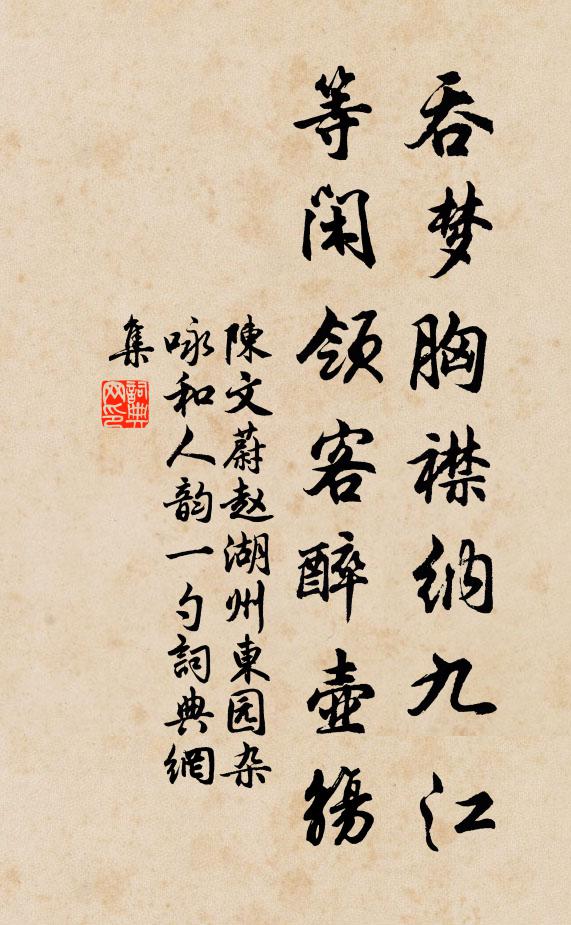 吞梦胸襟纳九江
等闲领客醉壶觞
陳文蔚赵湖州東园杂
咏和人韵一勺詞典網
集
詞典网印